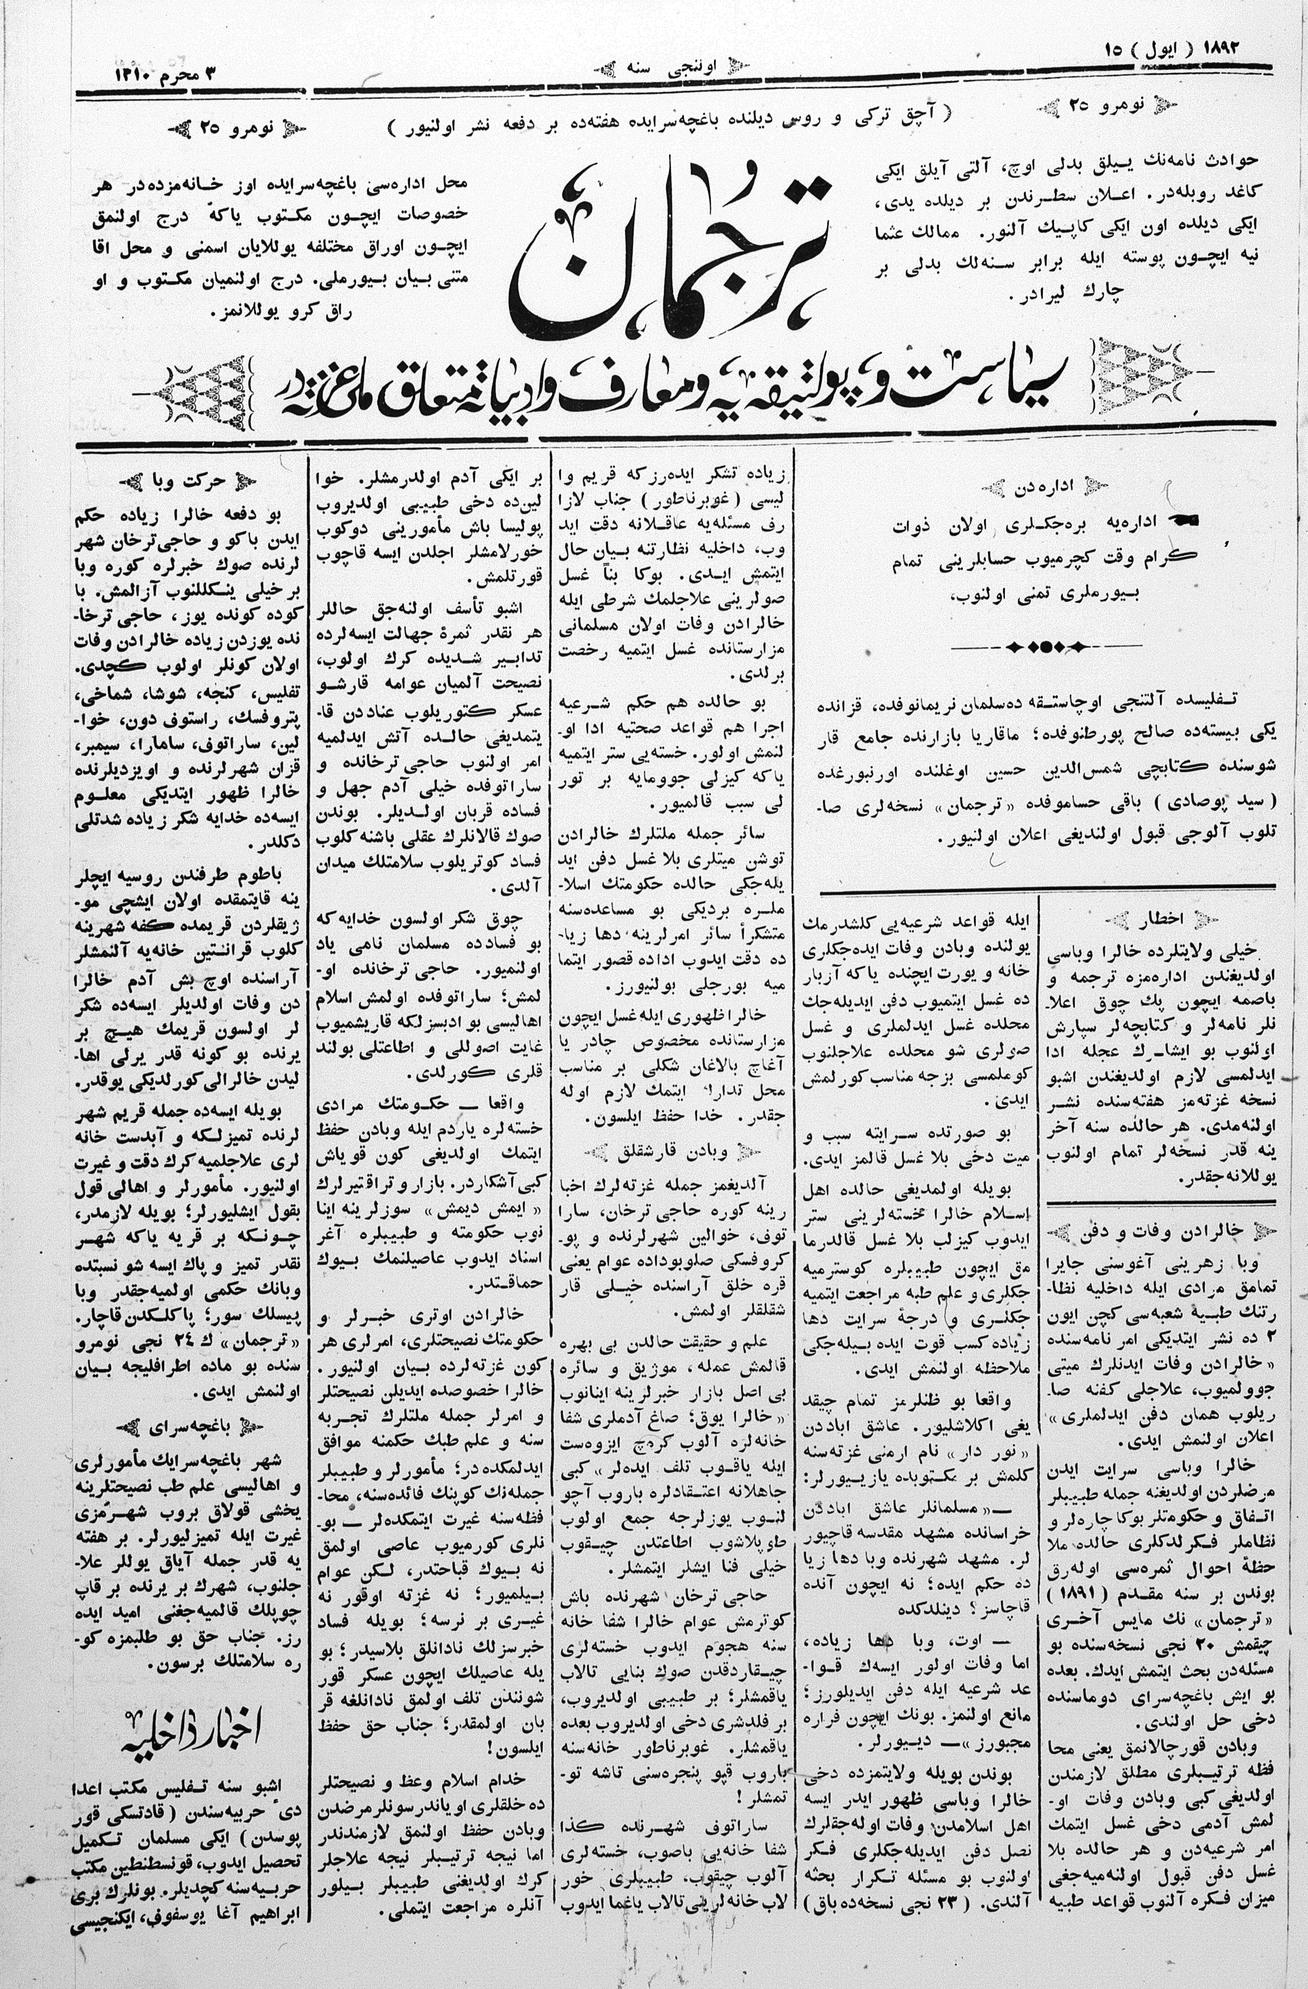 ١٨٩٢ ( ایول ) ١٥
اوننجی سنه
٣ محرم ١٣١٠
نومرو ٢٥
( آچق ترکی و روسی دیلنده باغچه‌سرایده هفته‌ده بر دفعه نشر اولنیور )
نومرو ٢٥
حوادث نامه‌نك ییلق بدلی اوچ، آلتی آیلق ایکی
کاغد روبله‌در. اعلان سطرندن بر دیلده یدی،
ایکی دیلده اون ایکی کاپیك آلنور. ممالك عثما
نیه ایچون پوسته ایله برابر سنه‌لك بدلی بر
چارك لیرادر.
ترجمان
محل اداره‌سی باغچه‌سرایده اوز خانه‌مزده‌در هر
خصوصات ایچون مکتوب یاکه درج اولنمق
ایچون اوراق مختلفه یوللایان اسمنی و محل اقا
متنی بیان بیورملی. درج اولنمیان مکتوب و او
راق کرو یوللانمز.
سیاست و پولتیقه‌یه و معارف و ادبیاته متعلق ملی غزته‌در
اداره‌دن
اداره‌یه بره‌جکلری اولان ذوات
کرام وقت کچرمیوب حسابلرینی تمام
بیورملری تمنی اولنوب،
تفلیسده آلتنجی اوچاستقه ده‌سلمان نریمانوفده، قزانده
یکی بیسته‌ده صالح پورطنوفده؛ ماقاریا بازارنده جامع قار
شوسنده کتابچی شمس‌الدین حسین اوغلنده اورنبورغده
( سید پوصادی ) باقی حساموفده «ترجمان» نسخه‌لری صا-
تلوب آلوجی قبول اولندیغی اعلان اولنیور.
اخطار
خیلی ولایتلرده خالرا وباسی
اولدیغندن اداره‌مزه ترجمه و
باصمه ایچون پك چوق اعلا-
نلر نامه‌لر و کتابچه‌لر سپارش
اولنوب بو ایشلرك عجله ادا
ایدلمسی لازم اولدیغندن اشبو
نسخه غزته‌مز هفته‌سنده نشر
اولنه‌مدی. هر حالده سنه آخر
ینه قدر نسخه‌لر تمام اولنوب
یوللانه‌جقدر.
خالرادن وفات و دفن
وبا زهرینی آغوسنی جایرا
تمامق مرادی ایله داخلیه نظا-
رتنك طبیه شعبه‌سی کچن ایون
٢ ده نشر ایتدیکی امر نامه‌سنده
«خالرادن وفات ایدنلرك میتی
جوولمیوب، علاجلی کفنه صا-
ریلوب همان دفن ایدلملری»
اعلان اولنمش ایدی.
خالرا وباسی سرایت ایدن
مرضلردن اولدیغنه جمله طبیبلر
اتفاق و حکومتلر بوکا چاره‌لر و
نظاملر فکرلدکلری حالده ملا
حظهٔ احوال ثمره‌سی اوله‌رق
بوندن بر سنه مقدم (١٨٩١)
«ترجمان» نك مایس آخری
چیقمش ٢٠ نجی نسخه‌سنده بو
مسئله‌دن بحث ایتمش ایدك. بعده
بو ایش باغچه‌سرای دوماسنده
دخی حل اولندی.
وبادن قورچالانمق یعنی محا
فظه ترتیبلری مطلق لازمندن
اولدیغی کبی وبادن وفات او-
لمش آدمی دخی غسل ایتمك
امر شرعیه‌دن و هر حالده بلا
غسل دفن قبول اولنه‌میه‌جغی
میزان فکره آلنوب قواعد طبیه
ایله قواعد شرعیه‌یی کلشدرمك
یولنده وبادن وفات ایده‌جکلری
خانه و یورت ایچنده یاکه آزبار
ده غسل ایتمیوب دفن ایدیله‌جك
محلده غسل ایدلملری و غسل
صولری شو محلده علاجلنوب
کوملمسی بزجه مناسب کورلمش
ایدی.
بو صورتده سرایته سبب و
میت دخی بلا غسل قالمز ایدی.
بویله اولمدیغی حالده اهل
اسلام خالرا خسته‌لرینی ستر
ایدوب کیزلب بلا غسل قالدرما
مق ایچون طبیبلره کوسترمیه
جکلری و علم طبه مراجعت ایتمیه
جکلری و درجهٔ سرایت دها
زیاده کسب قوت ایده بیله‌جکی
ملاحظه اولنمش ایدی.
واقعا بو ظنلرمز تمام چیقد
یغی اکلاشلیور. عاشق اباددن
«نور دار» نام ارمنی غزته‌سنه
کلمش بر مکتوبده یازییورلر:
—«مسلمانلر عاشق اباددن
خراسانده مشهد مقدسه قاچیور
لر. مشهد شهرنده وبا دها زیا
ده حکم ایده؛ نه ایچون آنده
قاچاسز؟ دینلدکده
— اوت، وبا دها زیاده،
اما وفات اولور ایسه‌ك قوا-
عد شرعیه ایله دفن ایدیلورز؛
مانع اولنمز. بونك ایچون فراره
مجبورز»— دییورلر.
بوندن بویله ولایتمزده دخی
خالرا وباسی ظهور ایدر ایسه
اهل اسلامدن وفات اوله‌جقلرك
نصل دفن ایدیله‌جکلری فکر
اولنوب بو مسئله تکرار بحثه
آلندی. (٢٣ نجی نسخه‌ده باق)
زیاده تشکر ایده‌رزکه قریم وا
لیسی (غوبرناطور) جناب لازا
رف مسئله‌یه عاقلانه دقت اید
وب، داخلیه نظارتنه بیان حال
ایتمش ایدی. بوکا بناً غسل
صولرینی علاجلمك شرطی ایله
خالرادن وفات اولان مسلمانی
مزارستانده غسل ایتمیه رخصت
برلدی.
بو حالده هم حکم شرعیه
اجرا هم قواعد صحتیه ادا او-
لنمش اولور. خسته‌یی ستر ایتمیه
یاکه کیزلی جوومایه بر تور
لی سبب قالمیور.
سائر جمله ملتلرك خالرادن
توشن میتلری بلا غسل دفن اید
یله‌جکی حالده حکومتك اسلا-
ملره بردیکی بو مساعده‌سنه
متشکراً سائر امرلرینه دها زیا-
ده دقت ایدوب اداده قصور ایتما
میه بورجلی بولنیورز.
خالرا ظهوری ایله غسل ایچون
مزارستانده مخصوص چادر یا
آغاچ بالاغان شکلی بر مناسب
محل تدارك ایتمك لازم اوله
جقدر. خدا حفظ ایلسون.
وبادن قارشقلق
آلدیغمز جمله غزته‌لرك اخبا
رینه کوره حاجی ترخان، سارا
توف، خوالین شهرلرنده و پو-
کروفسکی صلوبوداده عوام یعنی
قره خلق آراسنده خیلی قار
شقلقلر اولمش.
علم و حقیقت حالدن بی بهره
قالمش عمله، موژیق و سائره
بی اصل بازار خبرلرینه اینانوب
«خالرا یوق؛ صاغ آدملری شفا
خانه‌لره آلوب کرچ ایزوه‌ست
ایله یاقوب تلف ایده‌لر» کبی
جاهلانه اعتقادلره باروب آچو
لنوب یوزلرجه جمع اولوب
طوپلاشوب اطاعتدن چیقوب
خیلی فنا ایشلر ایتمشلر.
حاجی ترخان شهرنده باش
کوترمش عوام خالرا شفا خانه
سنه هجوم ایدوب خسته‌لری
چیقاردقدن صوك بنایی تالاب
یاقمشلر؛ بر طبیبی اولدیروب،
بر فلدشری دخی اولدیروب بعده
یاقمشلر. غوبرناطور خانه‌سنه
باروب قپو پنجره‌سنی تاشه تو-
تمشلر!
ساراتوف شهرنده کذا
شفا خانه‌یی باصوب، خسته‌لری
آلوب چیقوب، طبیبلری خور
لاب خانه‌لرینی تالاب یاغما ایدوب
بر ایکی آدم اولدرمشلر. خوا
لین‌ده دخی طبیبی اولدیروب
پولیسا باش مأمورینی دوکوب
خورلامشلر اجلدن ایسه قاچوب
قورتلمش.
اشبو تأسف اولنه‌جق حاللر
هر نقدر ثمرهٔ جهالت ایسه‌لرده
تدابیر شدیده کرك اولوب،
نصیحت آلمیان عوامه قارشو
عسکر کتوریلوب عناددن قا-
یتمدیغی حالده آتش ایدلمیه
امر اولنوب حاجی ترخانده و
ساراتوفده خیلی آدم جهل و
فساده قربان اولدیلر. بوندن
صوك قالانلرك عقلی باشنه کلوب
فساد کوتریلوب سلامتلك میدان
آلدی.
چوق شکر اولسون خدایه‌که
بو فسادده مسلمان نامی یاد
اولنمیور. حاجی ترخانده او-
لمش؛ ساراتوفده اولمش اسلام
اهالیسی بو ادبسزلکه قاریشمیوب
غایت اصوللی و اطاعتلی بولند
قلری کورلدی.
واقعا — حکومتك مرادی
خسته‌لره یاردم ایله وبادن حفظ
ایتمك اولدیغی کون قویاش
کبی آشکاردر. بازار و تراقتیرلرك
«ایمش دیمش» سوزلرینه اینا
نوب حکومته و طبیبلره آغر
اسناد ایدوب عاصیلنمك بیوك
حماقتدر.
خالرادن اوتری خبرلر و
حکومتك نصیحتلری، امرلری هر
کون غزته‌لرده بیان اولنیور.
خالرا خصوصده ایدیلن نصیحتلر
و امرلر جمله ملتلرك تجربه
سنه و علم طبك حکمنه موافق
ایدلمکده‌در؛ مأمورلر و طبیبلر
جمله‌نك کوپنك فائده‌سنه، محا-
فظه‌سنه غیرت ایتمکده‌لر — بو-
نلری کورمیوب عاصی اولمق
نه بیوك قباحتدر، لکن عوام
بیلمیور؛ نه غزته اوقور نه
غیری بر نرسه؛ بویله فساد
خبرسزلك نادانلق بلاسیدر؛ بو
یله عاصیلك ایچون عسکر قور
شونندن تلف اولمق نادانلغه قر
بان اولمقدر؛ جناب حق حفظ
ایلسون!
خدام اسلام وعظ و نصیحتلر
ده خلقلری اویاندرسونلر مرضدن
وبادن حفظ اولنمق لازمندندر
اما نیجه ترتیبلر نیجه علاجلر
کرك اولدیغنی طبیبلر بیلور
آنلره مراجعت ایتملی.
حرکت وبا
بو دفعه خالرا زیاده حکم
ایدن باکو و حاجی‌ترخان شهر
لرنده صوك خبرلره کوره وبا
بر خیلی ینکللنوب آزالمش. با
کوده کونده یوز، حاجی ترخا-
نده یوزدن زیاده خالرادن وفات
اولان کونلر اولوب کچدی.
تفلیس، کنجه، شوشا، شماخی،
پتروفسك، راستوف دون، خوا-
لین، ساراتوف، سامارا، سیمبر،
قزان شهرلرنده و اویزدیلرنده
خالرا ظهور ایتدیکی معلوم
ایسه‌ده خدایه شکر زیاده شدتلی
دکلدر.
باطوم طرفندن روسیه ایچلر
ینه قایتمقده اولان ایشچی مو-
ژیقلردن قریمده کفه شهرینه
کلوب قرانتین خانه‌یه آلنمشلر
آراسنده اوچ بش آدم خالرا
دن وفات اولدیلر ایسه‌ده شکر
لر اولسون قریمك هیچ بر
یرنده بو کونه قدر یرلی اها-
لیدن خالرالی کورلدیکی یوقدر.
بویله ایسه‌ده جمله قریم شهر
لرنده تمیزلکه و آبدست خانه
لری علاجلمیه کرك دقت و غیرت
اولنیور. مأمورلر و اهالی قول
بقول ایشلیورلر؛ بویله لازمدر،
چونکه بر قریه یاکه شهر
نقدر تمیز و پاك ایسه شو نسبتده
وبانك حکمی اولمیه‌جقدر وبا
پیسلك سور؛ پاکلکدن قاچار.
«ترجمان» ك ٢٤ نجی نومرو
سنده بو ماده اطرافلیجه بیان
اولنمش ایدی.
باغچه سرای
شهر باغچه‌سرایك مأمورلری
و اهالیسی علم طب نصیحتلرینه
یخشی قولاق بروب شهرمزی
غیرت ایله تمیزلیورلر. بر هفته
یه قدر جمله آیاق یوللر علا-
جلنوب، شهرك بر یرنده بر قاپ
چوپلك قالمیه‌جغنی امید ایده
رز. جناب حق بو طلبمزه کو-
ره سلامتلك برسون.
اخبار داخلیه
اشبو سنه تفلیس مکتب اعدا
دیٔ حربیه‌سندن (قادتسکی قور
پوسدن) ایکی مسلمان تکمیل
تحصیل ایدوب، قونسطنطین مکتب
حربیه‌سنه کچدیلر. بونلرك بری
ابراهیم آغا یوسفوف، ایکنجیسی